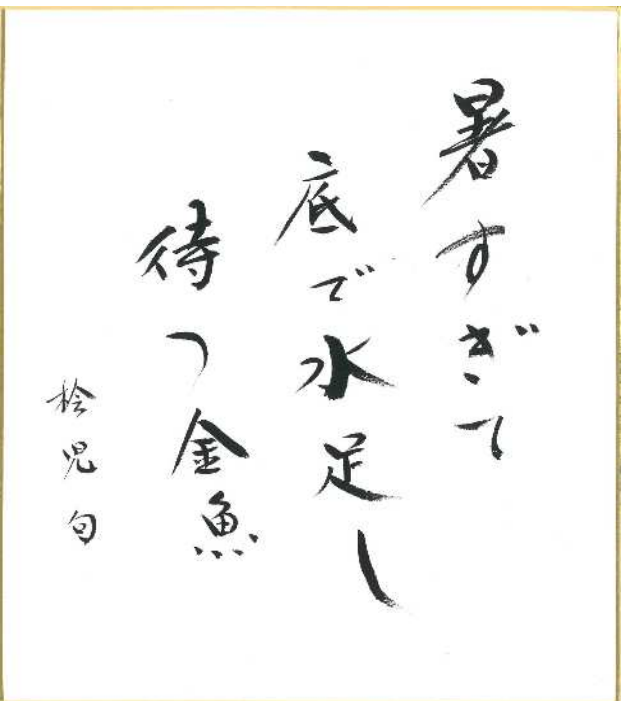 暑すぎて
底で水足し
待つ金魚
桧児句